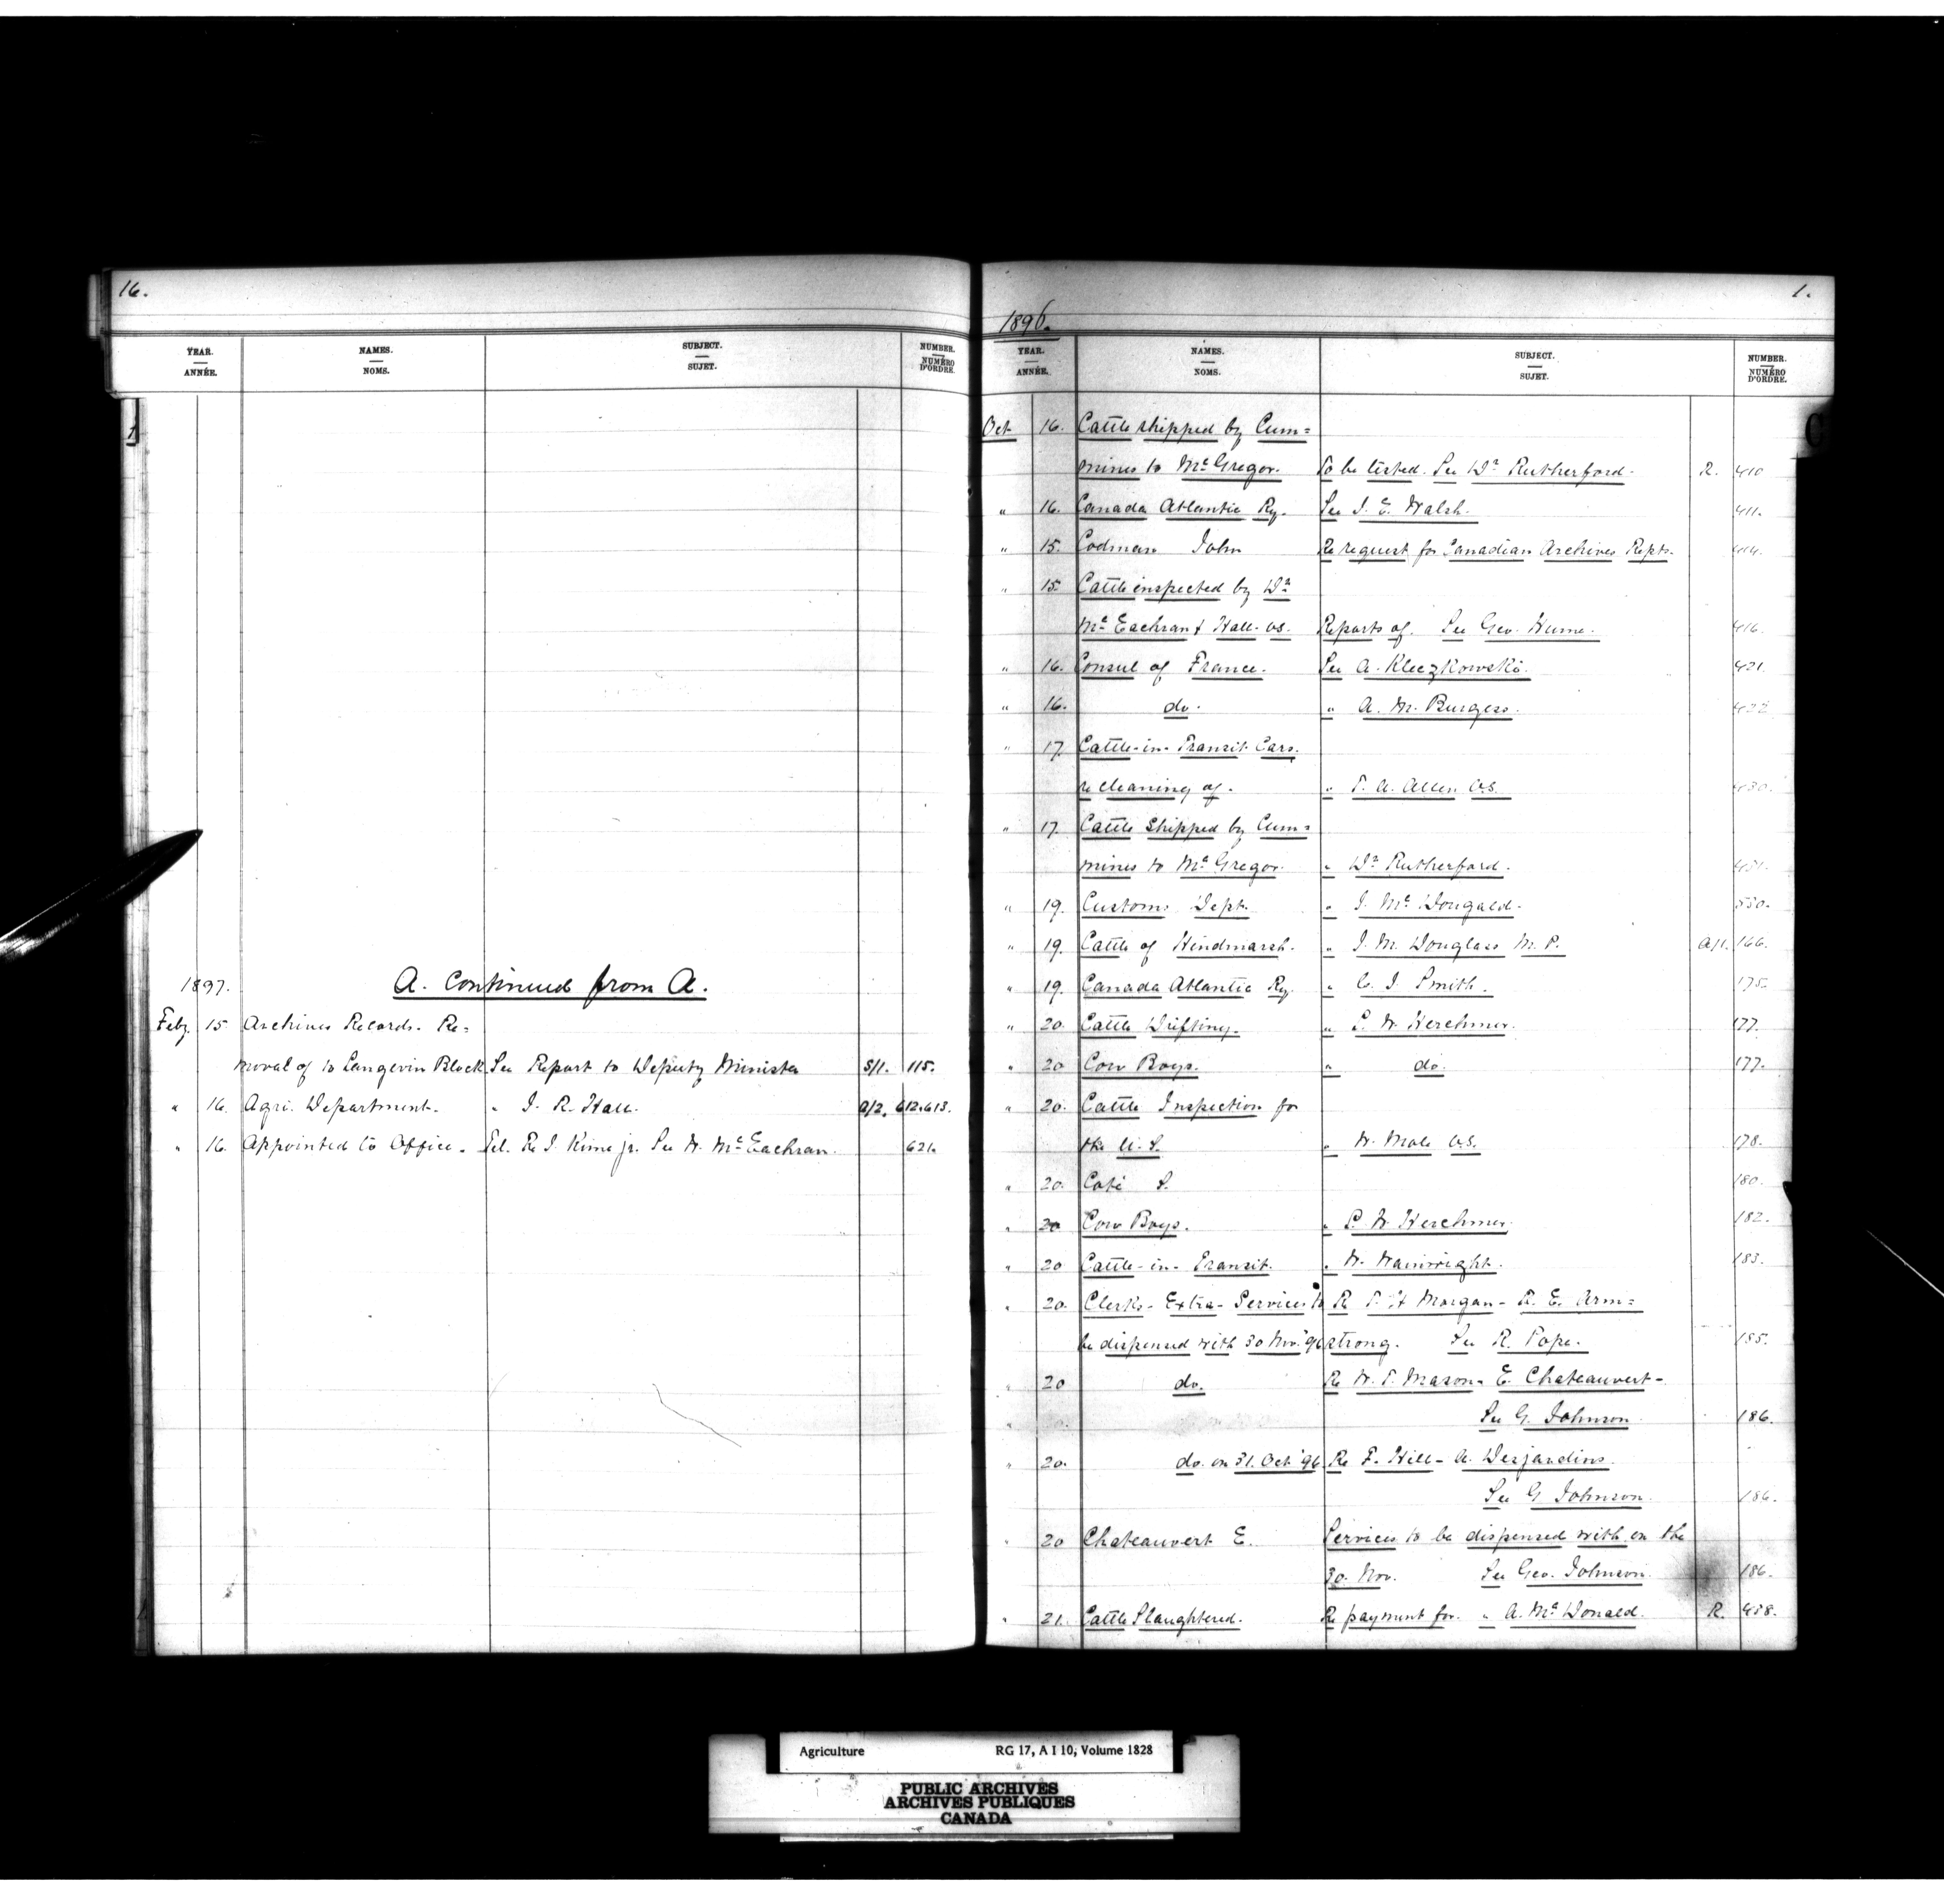 16.
YEAR. NAMES. SUBJECT. NUMBER.
ANNÉE. NOMS. SUJET. NUMÉRO D'ORDRE.
1897. A. Continued from A.
Feby 15 Archives Records. Re=
moval of to Langevin Block See Report to Deputy Minister S/1. 115.
" 16. Agri. Department. " J. R. Hall. A/2. 612.613.
" 16. Appointed to Office. Tel. Re J. Kime jr. See D. McEachran. 621.
1.
1896.
YEAR. NAMES. SUBJECT. NUMBER.
ANNÉE. NOMS. SUJET. NUMÉRO D'ORDRE.
C
Oct 16. Cattle shipped by Cum=
mines to McGregor. To be tested. See Dr Rutherford. R. 410
" 16. Canada Atlantic Ry. See J. E. Walsh. 411.
" 15. Codman John Re request for Canadian Archives Repts. 414.
" 15. Cattle inspected by Dr
McEachran & Hall. VS. Reports of. See Geo. Hume. 416.
" 16. Consul of France. See A. Kleczkowski. 421.
" 16. do. " A. M. Burgess. 422
" 17. Cattle-in-Transit Cars.
re cleaning of. " T. A. Allen V.S. 430.
" 17. Cattle Shipped by Cum=
mines to McGregor. " Dr Rutherford. 431.
" 19. Customs Dept. " J. McDougald. 550.
" 19. Cattle of Hindmarsh. " J. M. Douglass M. P. A/1. 166.
" 19. Canada Atlantic Ry. " C. J. Smith. 175.
" 20. Cattle Drifting. " L. W. Herchmer. 177.
" 20 Cow Boys. " do. 177.
" 20. Cattle Inspection for
the U. S. " W. Mole V.S. 178.
" 20. Coté S. 180.
" 20 Cow Boys. " L. W. Herchmer. 182.
" 20 Cattle-in-Transit. " W. Wainwright. 183.
" 20. Clerks-Extra-Services to Re T. H Morgan - R. E. Arm=
be dispensed with 30 Nov. '96 strong. See R. Pope. 185.
" 20 do. Re W. T. Mason - E. Chateauvert -
" See G. Johnson 186.
" 20. do. on 31. Oct '96 Re F. Hill - A. Desjardins.
See G Johnson. 186.
" 20 Chateauvert E. Services to be dispensed with on the
30. Nov. See Geo. Johnson 186.
" 21. Cattle Slaughtered. Re payment for. " A. McDonald. R. 438.
Agriculture RG 17, A I 10, Volume 1828
PUBLIC ARCHIVES
ARCHIVES PUBLIQUES
CANADA